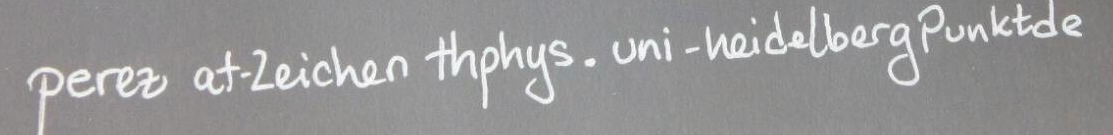 perez at-Zeichen thphys. uni-heidelberg Punktde